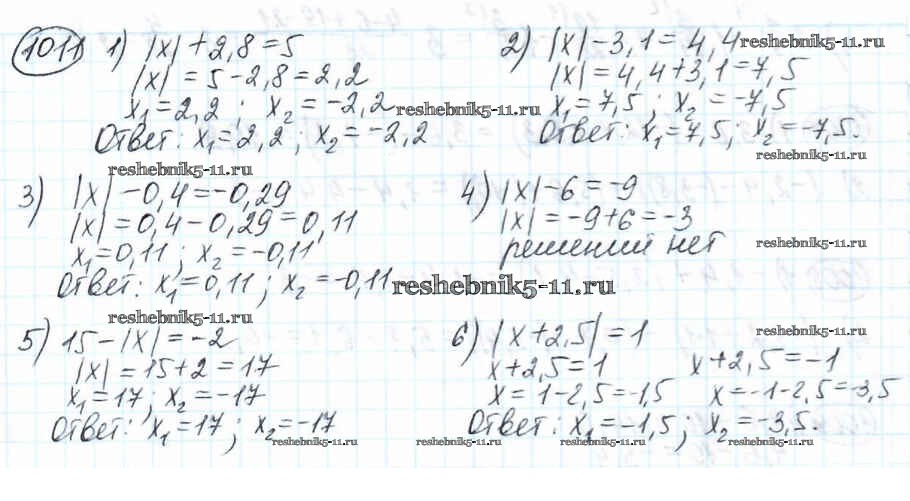 1011 1) |x| + 2,8 = 5
|x| = 5 - 2,8 = 2,2
x₁ = 2,2 ; x₂ = -2,2
Ответ: x₁ = 2,2 ; x₂ = -2,2
2) |x| - 3,1 = 4,4
|x| = 4,4 + 3,1 = 7,5
x₁ = 7,5 ; x₂ = -7,5
Ответ: x₁ = 7,5 ; x₂ = -7,5.
3) |x| - 0,4 = -0,29
|x| = 0,4 - 0,29 = 0,11
x₁ = 0,11 ; x₂ = -0,11
Ответ: x₁ = 0,11 ; x₂ = -0,11
4) |x| - 6 = -9
|x| = -9 + 6 = -3
решений нет
5) 15 - |x| = -2
|x| = 15 + 2 = 17
x₁ = 17 ; x₂ = -17
Ответ: x₁ = 17 ; x₂ = -17
6) |x + 2,5| = 1
x + 2,5 = 1 x + 2,5 = -1
x = 1 - 2,5 = -1,5 x = -1 - 2,5 = -3,5
Ответ: x₁ = -1,5 ; x₂ = -3,5.
reshebnik5-11.ru
reshebnik5-11.ru
reshebnik5-11.ru
reshebnik5-11.ru
reshebnik5-11.ru
reshebnik5-11.ru
reshebnik5-11.ru
reshebnik5-11.ru
reshebnik5-11.ru
reshebnik5-11.ru
reshebnik5-11.ru
reshebnik5-11.ru